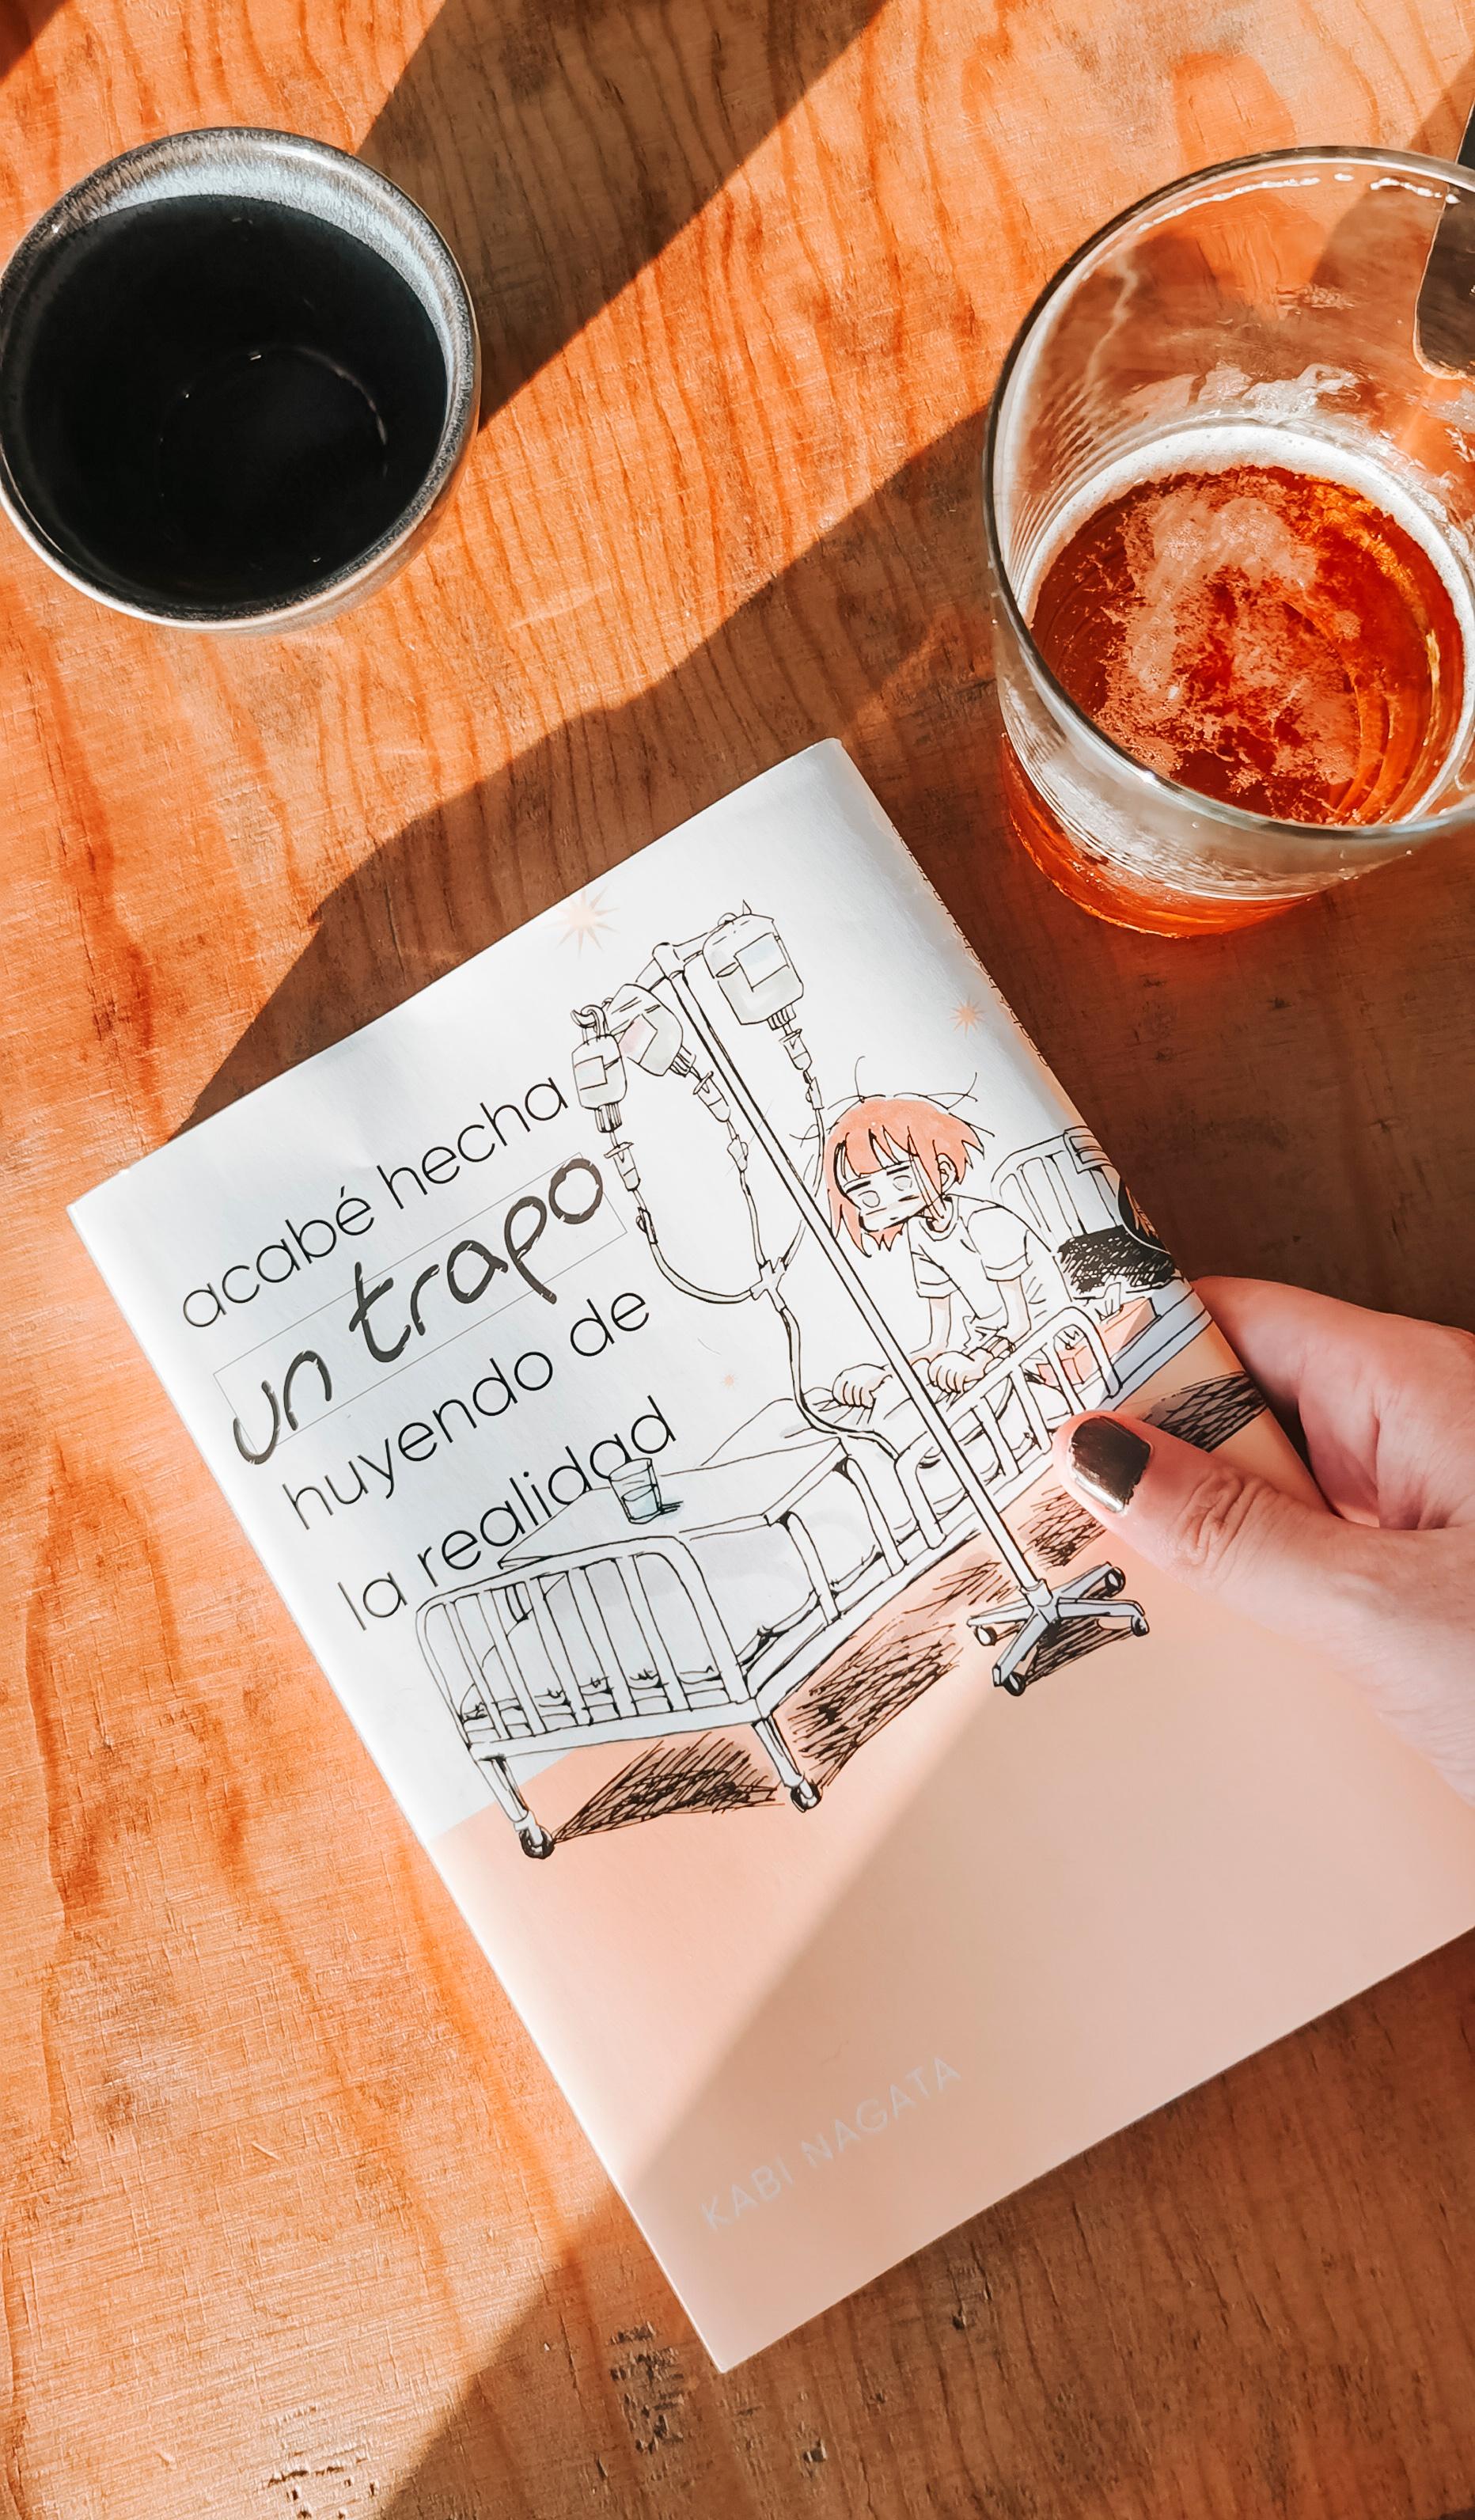 acabé hecha
un trapo
huyendo de
la realidad
KABI NAGATA